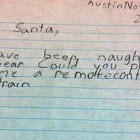 Austin No
Santa,
ave been naugh
ear Could you p
me a remotecont
rain